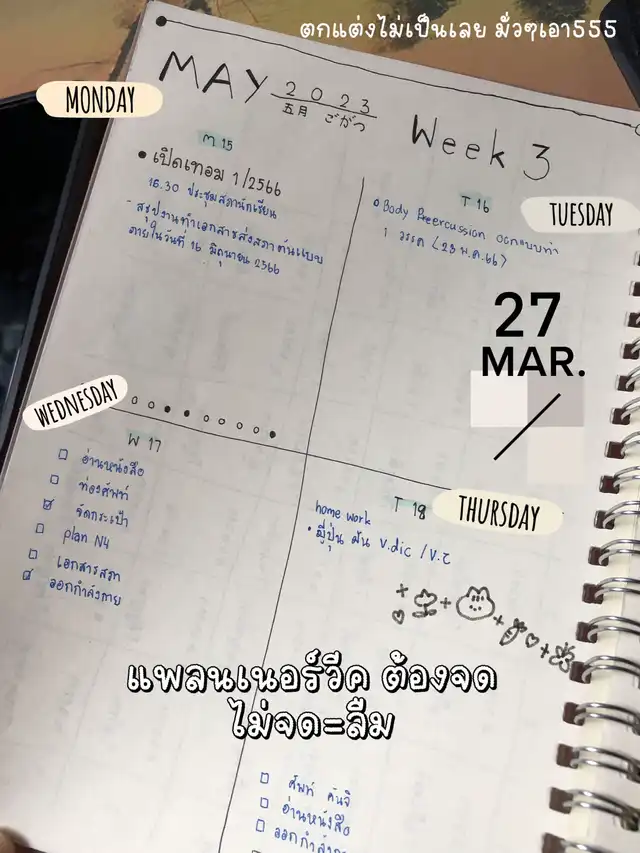 ตกแต่งไม่เป็นเลย มั่วๆเอา555
MONDAY
MAY 2023
五月 ごがつ
Week 3
M 15
• เปิดเทอม 1/2566
16.30 ประชุมสภานักเรียน
- สรุปงานทำเอกสารส่งสภาต้นแบบ
ภายในวันที่ 16 มิถุนายน 2566
T 16
TUESDAY
Body Peercussion ออกแบบท่า
1 วรรค (23 พ.ค.66)
27
MAR.
WEDNESDAY
W 17
อ่านหนังสือ
ท่องศัพท์
จัดกระเป๋า
plan N4
เอกสารสภา
ออกกำลังกาย
T 18
THURSDAY
home work
• ญี่ปุ่น ผัน V.dic / V.て
แพลนเนอร์วีค ต้องจด
ไม่จด=ลืม
ศัพท์ คันจิ
อ่านหนังสือ
ออกกำลังกาย